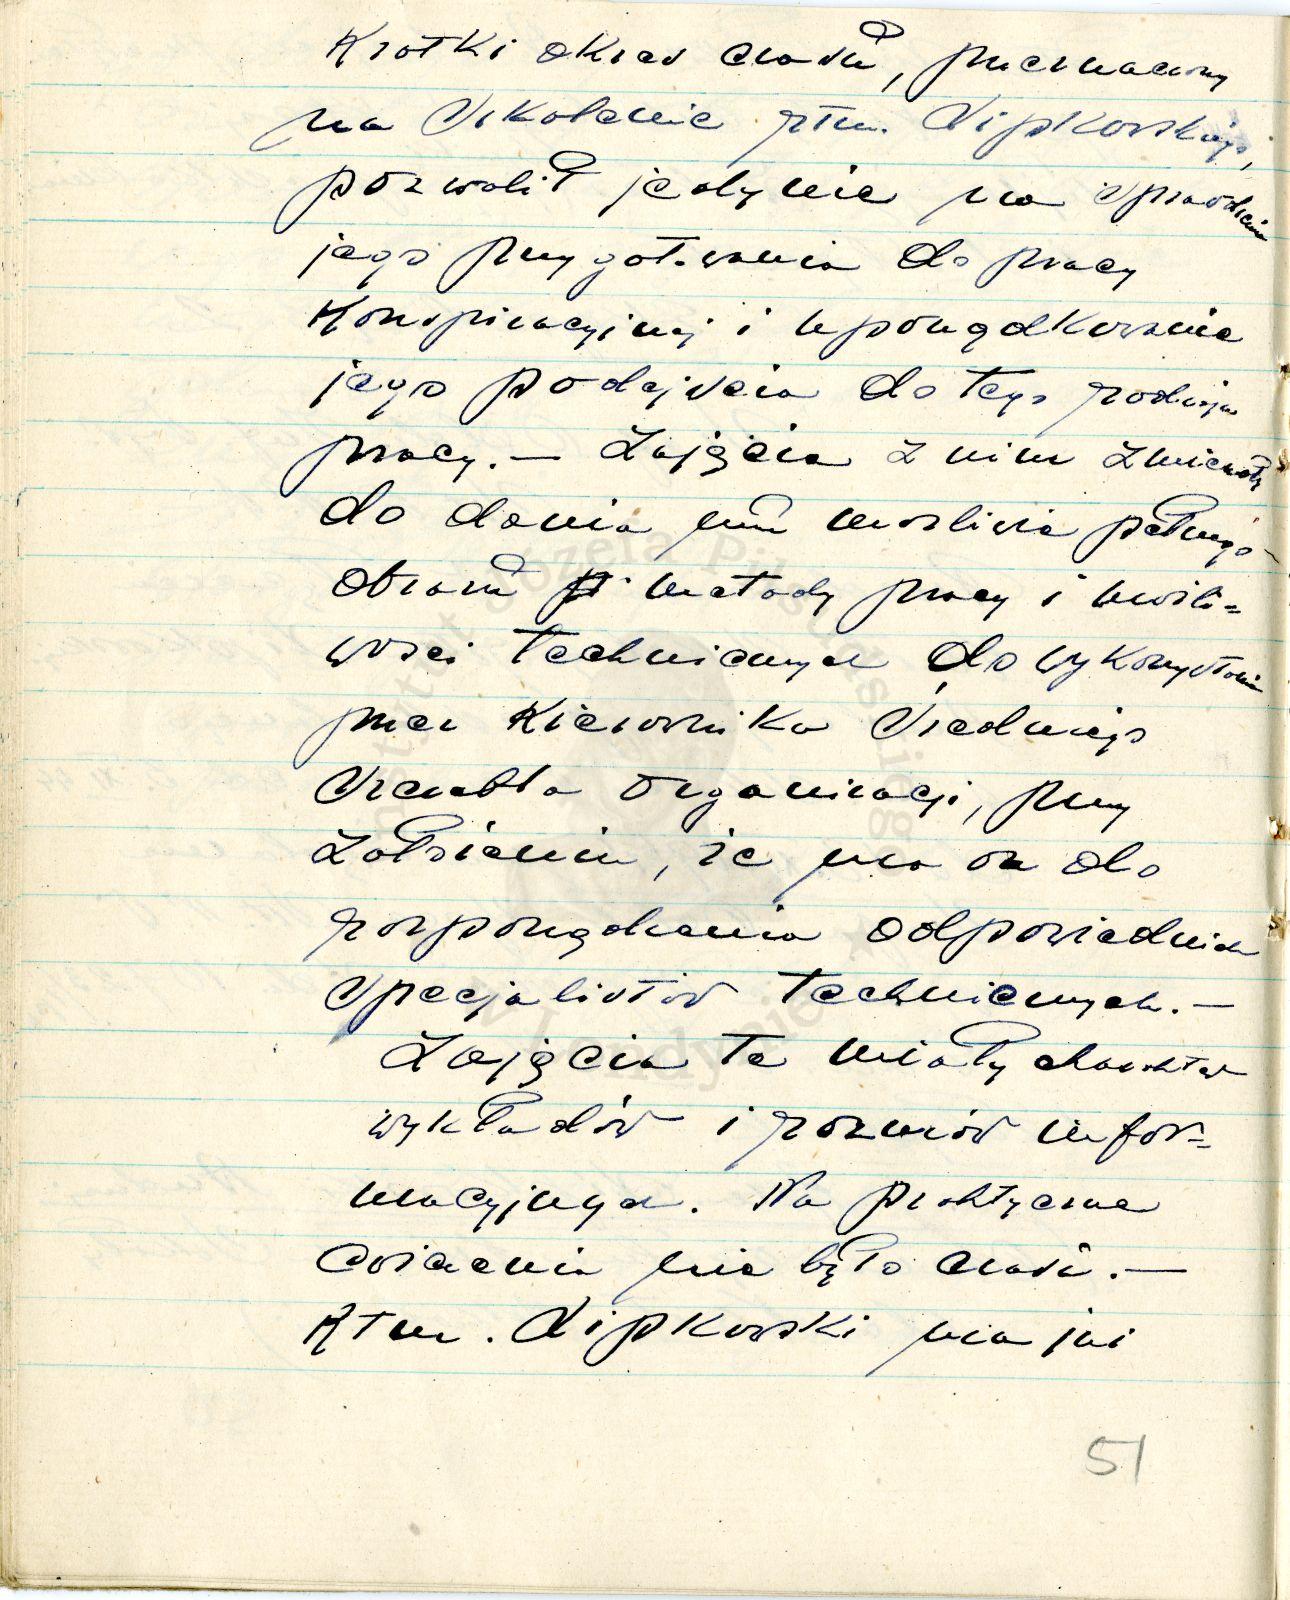 Krótki okres czasu, przeznaczony
na szkolenie rtm. Lipkowskiego,
pozwolił jedynie na sprawdzenie
jego przygotowania do pracy
konspiracyjnej i uporządkowanie
jego podejścia do tego rodzaju
pracy. — Zajęcia z nim zmierzały
do dania mu możliwie pełnego
obrazu metody pracy i możli=
wości technicznych do wykorzystania
przez kierownika średniego
szczebla organizacji, przy
założeniu, że ma on do
rozporządzenia odpowiednich
specjalistów technicznych. —
Zajęcia te miały charakter
wykładów i rozmów infor=
macyjnych. Na praktyczne
ćwiczenia nie było czasu. —
Rtm. Lipkowski ma już
51
Instytut Józefa Piłsudskiego
w Londynie